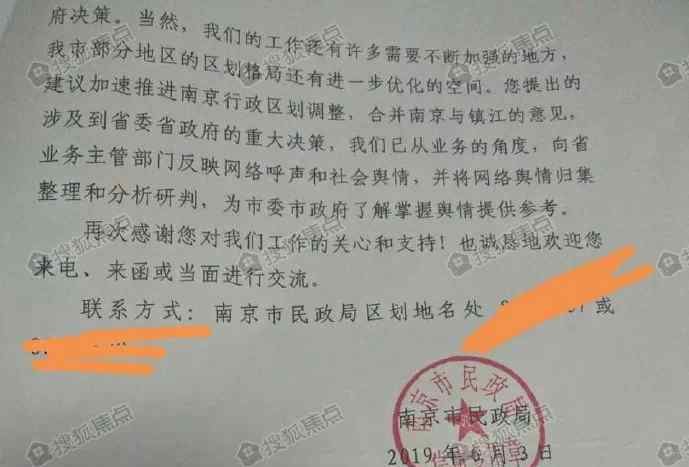 府决策。当然，我们的工作还有许多需要不断加强的地方，
我市部分地区的区划格局还有进一步优化的空间。您提出的
建议加速推进南京行政区划调整，合并南京与镇江的意见，
涉及到省委省政府的重大决策，我们已从业务的角度，向省
业务主管部门反映网络呼声和社会舆情，并将网络舆情归集
整理和分析研判，为市委市政府了解掌握舆情提供参考。
再次感谢您对我们工作的关心和支持！也诚恳地欢迎您
来电、来函或当面进行交流。
联系方式：南京市民政局区划地名处 或
南京市民政局
南京市民政局
2019年6月3日
搜狐焦点